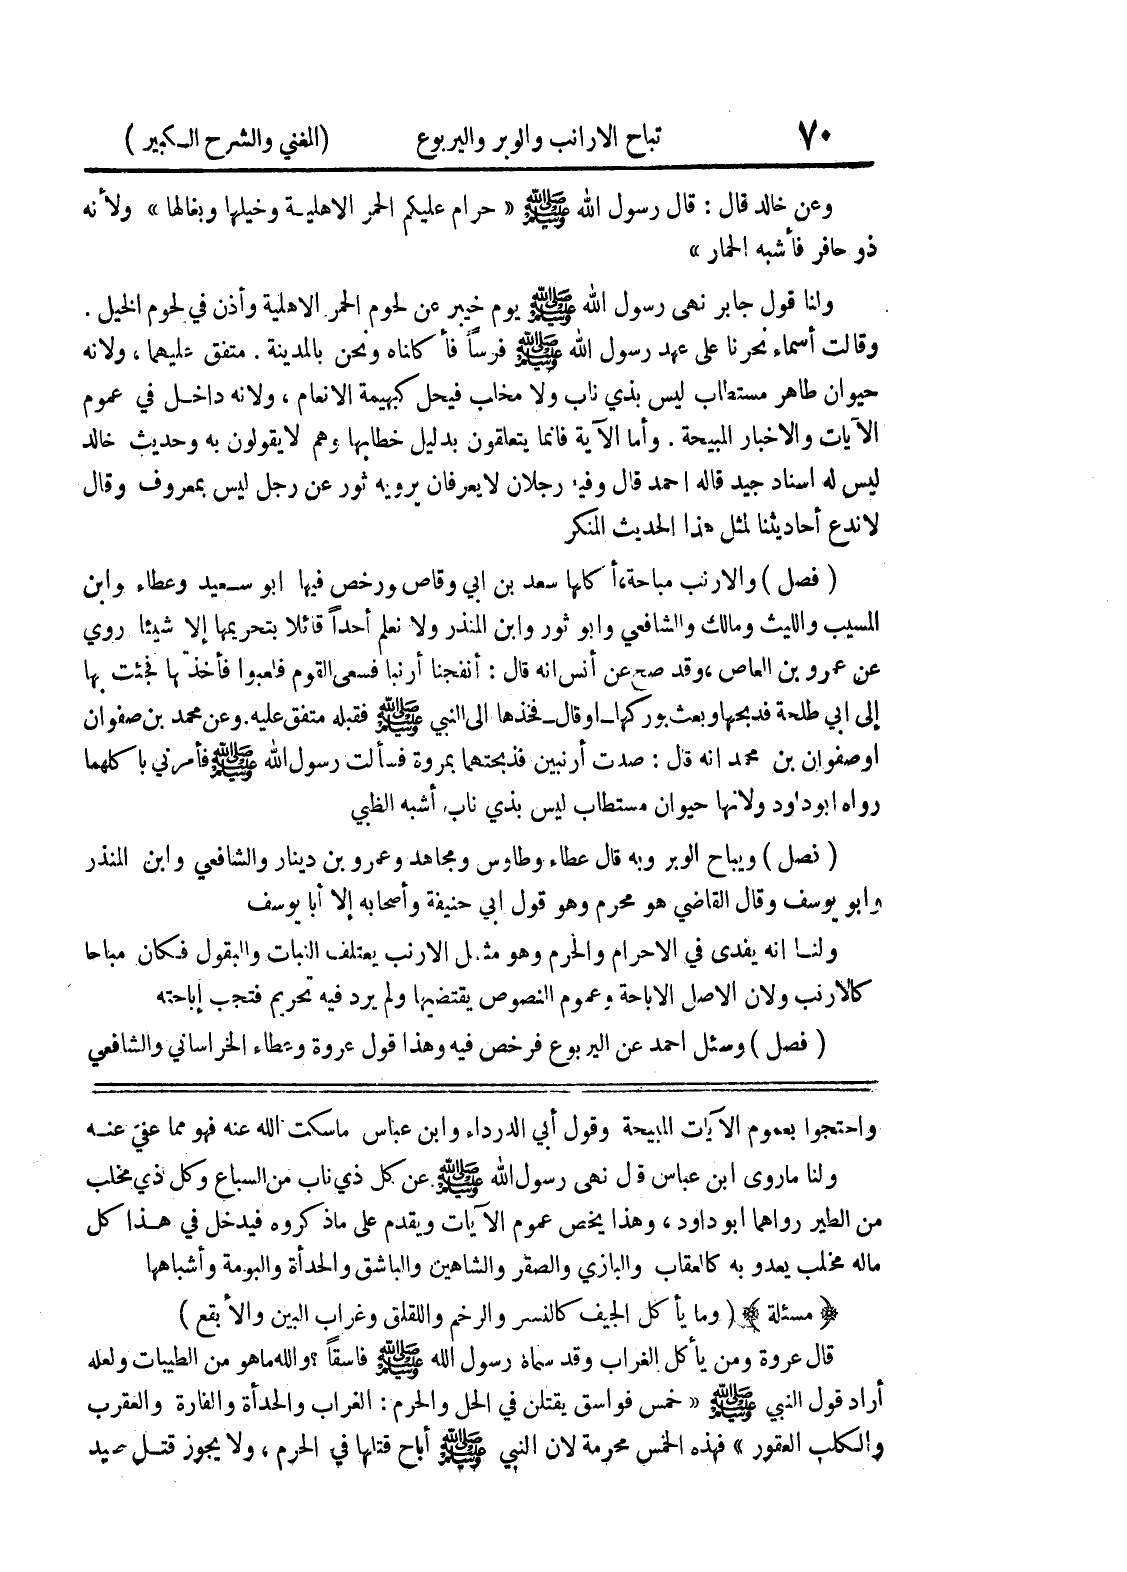 ٧٠ تباح الارانب والوبر واليربوع (المغني والشرح الكبير)
وعن خالد قال : قال رسول الله ﷺ « حرام عليكم الحمر الاهلية وخيلها وبغالها » ولأنه
ذو حافر فأشبه الحمار »
ولنا قول جابر نهى رسول الله ﷺ يوم خيبر عن لحوم الحمر الاهلية وأذن في لحوم الخيل .
وقالت أسماء نحرنا على عهد رسول الله ﷺ فرساً فأكلناه ونحن بالمدينة . متفق عليهما ، ولانه
حيوان طاهر مستطاب ليس بذي ناب ولا مخلب فيحل كبهيمة الانعام ، ولانه داخل في عموم
الآيات والاخبار المبيحة . وأما الآية فانما يتعلقون بدليل خطابها وهم لايقولون به وحديث خالد
ليس له اسناد جيد قاله احمد قال وفيه رجلان لايعرفان يرويه ثور عن رجل ليس بمعروف وقال
لاندع أحاديثنا لمثل هذا الحديث المنكر
( فصل ) والارنب مباحة،أكلها سعد بن ابي وقاص ورخص فيها ابو سعيد وعطاء وابن
المسيب والليث ومالك والشافعي وابو ثور وابن المنذر ولا نعلم أحداً قائلا بتحريمها إلا شيئا روي
عن عمرو بن العاص ،وقد صح عن أنس انه قال : أنفجنا أرنبا فسعى القوم فلعبوا فأخذتها فجئت بها
إلى ابي طلحة فذبحها وبعث بوركها ـ اوقال ـ فخذها الى النبي ﷺ فقبله متفق عليه.وعن محمد بن صفوان
اوصفوان بن محمد انه قال : صدت أرنبين فذبحتهما بمروة فسألت رسول الله ﷺ فأمرني باكلهما
رواه ابوداود ولانها حيوان مستطاب ليس بذي ناب أشبه الظبي
( فصل ) ويباح الوبر وبه قال عطاء وطاوس ومجاهد وعمرو بن دينار والشافعي وابن المنذر
وابو يوسف وقال القاضي هو محرم وهو قول ابي حنيفة وأصحابه إلا أبا يوسف
ولنا انه يفدى في الاحرام والحرم وهو مثل الارنب يعتلف النبات والبقول فكان مباحا
كالارنب ولان الاصل الاباحة وعموم النصوص يقتضيها ولم يرد فيه تحريم فتجب إباحته
( فصل ) وسئل احمد عن اليربوع فرخص فيه وهذا قول عروة وعطاء الخراساني والشافعي
واحتجوا بعموم الآيات المبيحة وقول أبي الدرداء وابن عباس ماسكت الله عنه فهو مما عفي عنه
ولنا ماروى ابن عباس قال نهى رسول الله ﷺ عن كل ذي ناب من السباع وكل ذي مخلب
من الطير رواهما ابو داود ، وهذا يخص عموم الآيات ويقدم على ماذكروه فيدخل في هذا كل
ماله مخلب يعدو به كالعقاب والبازي والصقر والشاهين والباشق والحدأة والبومة وأشباهها
﴿ مسئلة ﴾ ( وما يأكل الجيف كالنسر والرخم واللقلق وغراب البين والأبقع )
قال عروة ومن يأكل الغراب وقد سماه رسول الله ﷺ فاسقاً ؟والله ماهو من الطيبات ولعله
أراد قول النبي ﷺ « خمس فواسق يقتلن في الحل والحرم : الغراب والحدأة والفارة والعقرب
والكلب العقور » فهذه الخمس محرمة لان النبي ﷺ أباح قتلها في الحرم ، ولا يجوز قتل صيد